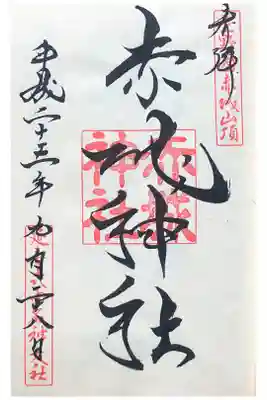 奉拝
赤城山頂
赤城神社
赤城
神社
平成二十三年九月二八日